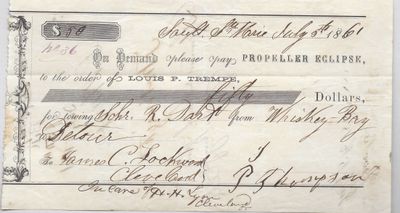 $ 50
Sault Ste Marie July 5th 1861
No 86
On Demand please pay PROPELLER ECLIPSE,
to the order of LOUIS P. TREMPE,
Fifty Dollars,
for towing Schr. R. Dart from Whiskey Bay
to Detour
To James C. Lockwood
Cleveland
P Thompson
In Care of H. H.
Cleveland